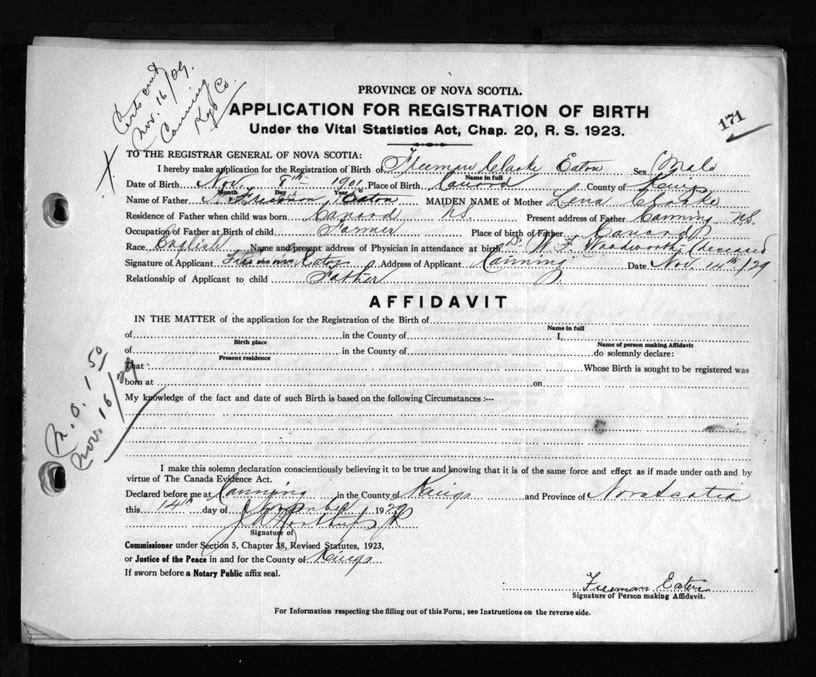 Cert sent
Nov. 16/29.
Canning
Kgs Co.
PROVINCE OF NOVA SCOTIA.
APPLICATION FOR REGISTRATION OF BIRTH
Under the Vital Statistics Act, Chap. 20, R. S. 1923.
171
TO THE REGISTRAR GENERAL OF NOVA SCOTIA:
I hereby make application for the Registration of Birth of Freeman Clarke Eaton Sex Male
Name in full
Date of Birth Nov. 8th 1901 Place of Birth Canard County of Kings
Month Day Year
Name of Father Freeman Eaton MAIDEN NAME of Mother Lena Clarke
Residence of Father when child was born Canard NS. Present address of Father Canning NS.
Occupation of Father at Birth of child Farmer Place of birth of Father Canard
Race English Name and present address of Physician in attendance at birth Dr W. F. Woodworth (Deceased
Signature of Applicant Freeman Eaton Address of Applicant Canning Date Nov 14th/29
Relationship of Applicant to child Father
AFFIDAVIT
IN THE MATTER of the application for the Registration of the Birth of
Name in full
of in the County of I,
Birth place Name of person making Affidavit
of in the County of do solemnly declare:
Present residence
That Whose Birth is sought to be registered was
born at on
My knowledge of the fact and date of such Birth is based on the following Circumstances :--
M.O. 1 50
Nov. 16/29
I make this solemn declaration conscientiously believing it to be true and knowing that it is of the same force and effect as if made under oath and by
virtue of The Canada Evidence Act.
Declared before me at Canning in the County of Kings and Province of Nova Scotia
this 14th day of November 1929
Signature of
Commissioner under Section 5, Chapter 38, Revised Statutes, 1923,
or Justice of the Peace in and for the County of Kings
If sworn before a Notary Public affix seal.
Freeman Eaton
Signature of Person making Affidavit.
For Information respecting the filling out of this Form, see Instructions on the reverse side.